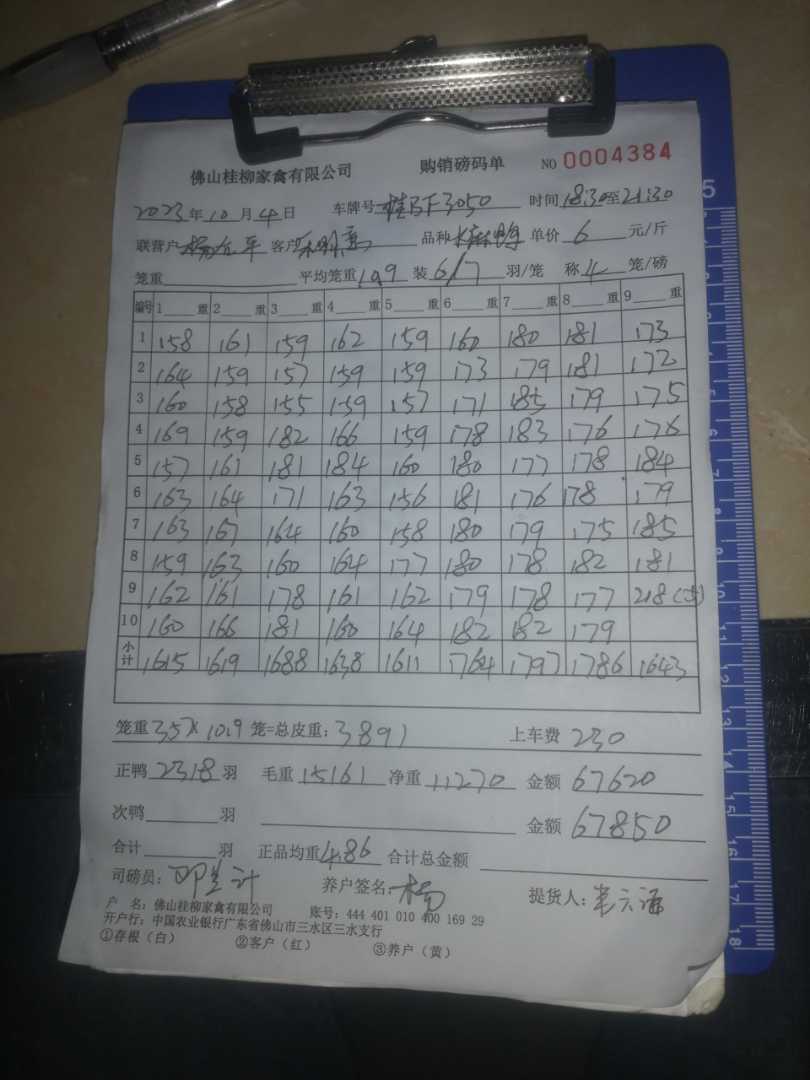 佛山桂柳家禽有限公司 购销磅码单 NO 0004384
2023年10月4日 车牌号 桂 3050 时间18:30至21:30
联营户 杨 平 客户 品种 鸭 单价 6 元/斤
笼重 平均笼重 10.9 装 6/7 羽/笼 称 4 笼/磅
编号 1 重 2 重 3 重 4 重 5 重 6 重 7 重 8 重 9 重
1 158 161 159 162 159 160 180 181 173
2 164 159 157 159 159 173 179 181 172
3 160 158 155 159 157 171 185 179 175
4 169 159 182 166 159 178 183 176 176
5 157 161 181 184 160 180 177 178 184
6 163 164 171 163 156 181 176 178 179
7 163 167 164 160 158 180 179 175 185
8 159 163 160 164 177 180 178 182 181
9 162 161 178 161 162 179 178 177 218
10 160 166 181 160 164 182 182 179
小计 1615 1619 1688 1638 1611 1764 1797 1786 1643
笼重 357×10.9 笼=总皮重: 3891 上车费 230
正鸭 2318 羽 毛重 15161 净重 11270 金额 67620
次鸭 羽 金额 67850
合计 羽 正品均重 4.86 合计总金额
司磅员: 邓 计 养户签名: 杨 提货人:
户 名: 佛山桂柳家禽有限公司 账号: 444 401 010 400 169 29
开户行: 中国农业银行广东省佛山市三水区三水支行
①存根(白) ②客户(红) ③养户(黄)